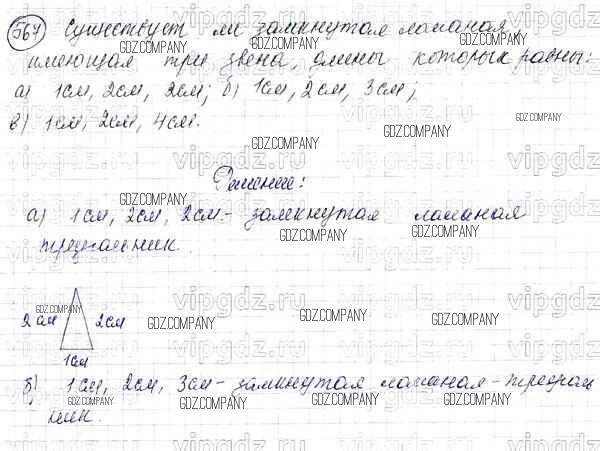 567 Существует ли замкнутая ломаная,
имеющая три звена, длины которых равны:
а) 1см, 2см, 2см; б) 1см, 2см, 3см;
в) 1см, 2см, 4см.
Решение:
а) 1см, 2см, 2см - замкнутая ломаная
треугольник.
2см 2см
1см
б) 1см, 2см, 3см - замкнутая ломаная - треуголь
ник.
GDZ.COMPANY
vipgdz.ru